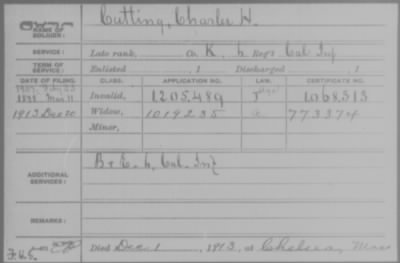 NAME OF SOLDIER: Cutting, Charles H.
SERVICE: Late rank, K, 6 Reg't Cal. Inf
TERM OF SERVICE: Enlisted , 1 Discharged , 1
DATE OF FILING. CLASS. APPLICATION NO. LAW. CERTIFICATE NO.
Invalid, 1205489 1068513
1913 Dec 20 Widow, 1019235 773374
Minor,
ADDITIONAL SERVICES: B & E. 6, Cal. Inf
REMARKS:
Died Dec. 1, 1913, at Chelsea, Mass